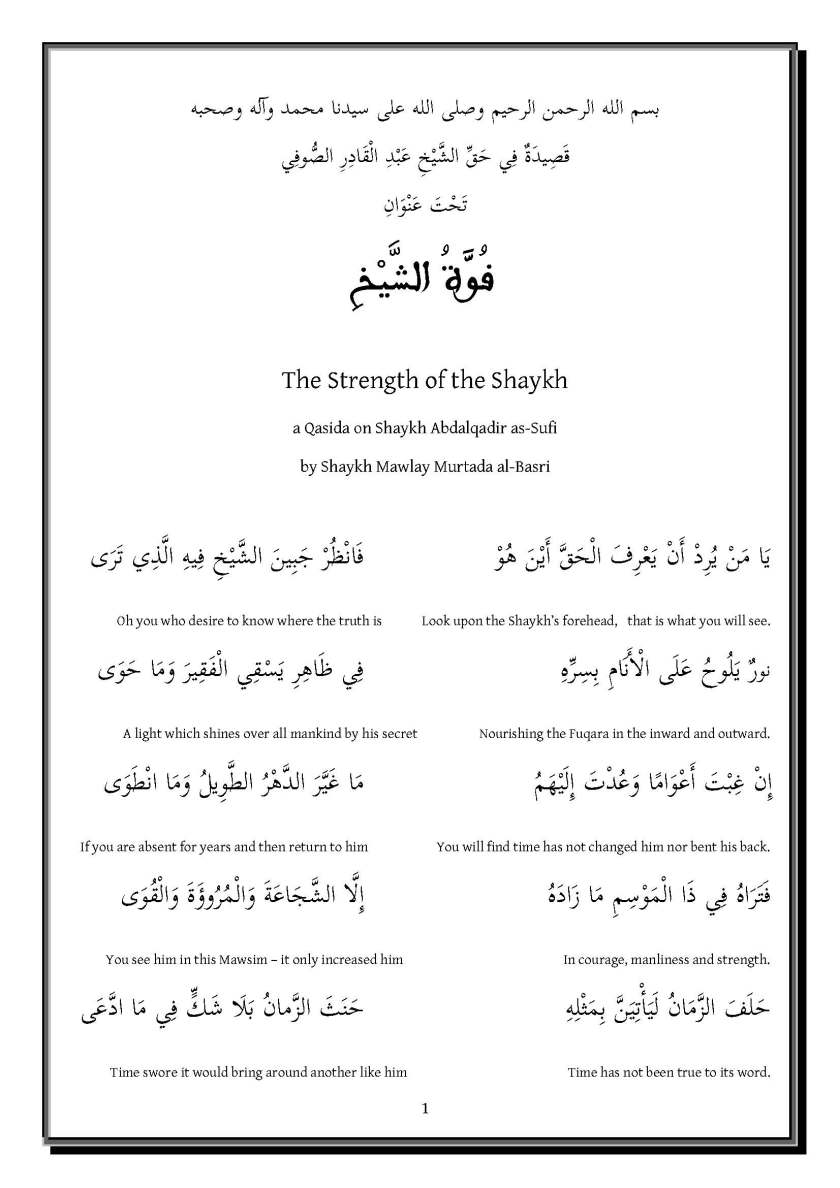 بسم الله الرحمن الرحيم وصلى الله على سيدنا محمد وآله وصحبه
قَصِيدَةٌ فِي حَقِّ الشَّيْخِ عَبْدِ الْقَادِرِ الصُّوفِي
تَحْتَ عَنْوَانِ
قُوَّةُ الشَّيْخِ
The Strength of the Shaykh
a Qasida on Shaykh Abdalqadir as-Sufi
by Shaykh Mawlay Murtada al-Basri
يَا مَنْ يُرِدْ أَنْ يَعْرِفَ الْحَقَّ أَيْنَ هُوْ فَانْظُرْ جَبِينَ الشَّيْخِ فِيهِ الَّذِي تَرَى
Oh you who desire to know where the truth is Look upon the Shaykh's forehead, that is what you will see.
نورٌ يَلُوحُ عَلَى الْأَنَامِ بِسِرِّهِ فِي ظَاهِرِ يَسْقِي الْفَقِيرَ وَمَا حَوَى
A light which shines over all mankind by his secret Nourishing the Fuqara in the inward and outward.
إِنْ غِبْتَ أَعْوَامًا وَعُدْتَ إِلَيْهَمُ مَا غَيَّرَ الدَّهْرُ الطَّوِيلُ وَمَا انْطَوَى
If you are absent for years and then return to him You will find time has not changed him nor bent his back.
فَتَرَاهُ فِي ذَا الْمَوْسِمِ مَا زَادَهُ إِلَّا الشَّجَاعَةَ وَالْمُرُوؤَةَ وَالْقُوَى
You see him in this Mawsim – it only increased him In courage, manliness and strength.
حَلَفَ الزَّمَانُ لَيَأْتِيَنَّ بِمَثْلِهِ حَنَثَ الزَّمانُ بَلَا شَكٍّ فِي مَا ادَّعَى
Time swore it would bring around another like him Time has not been true to its word.
1